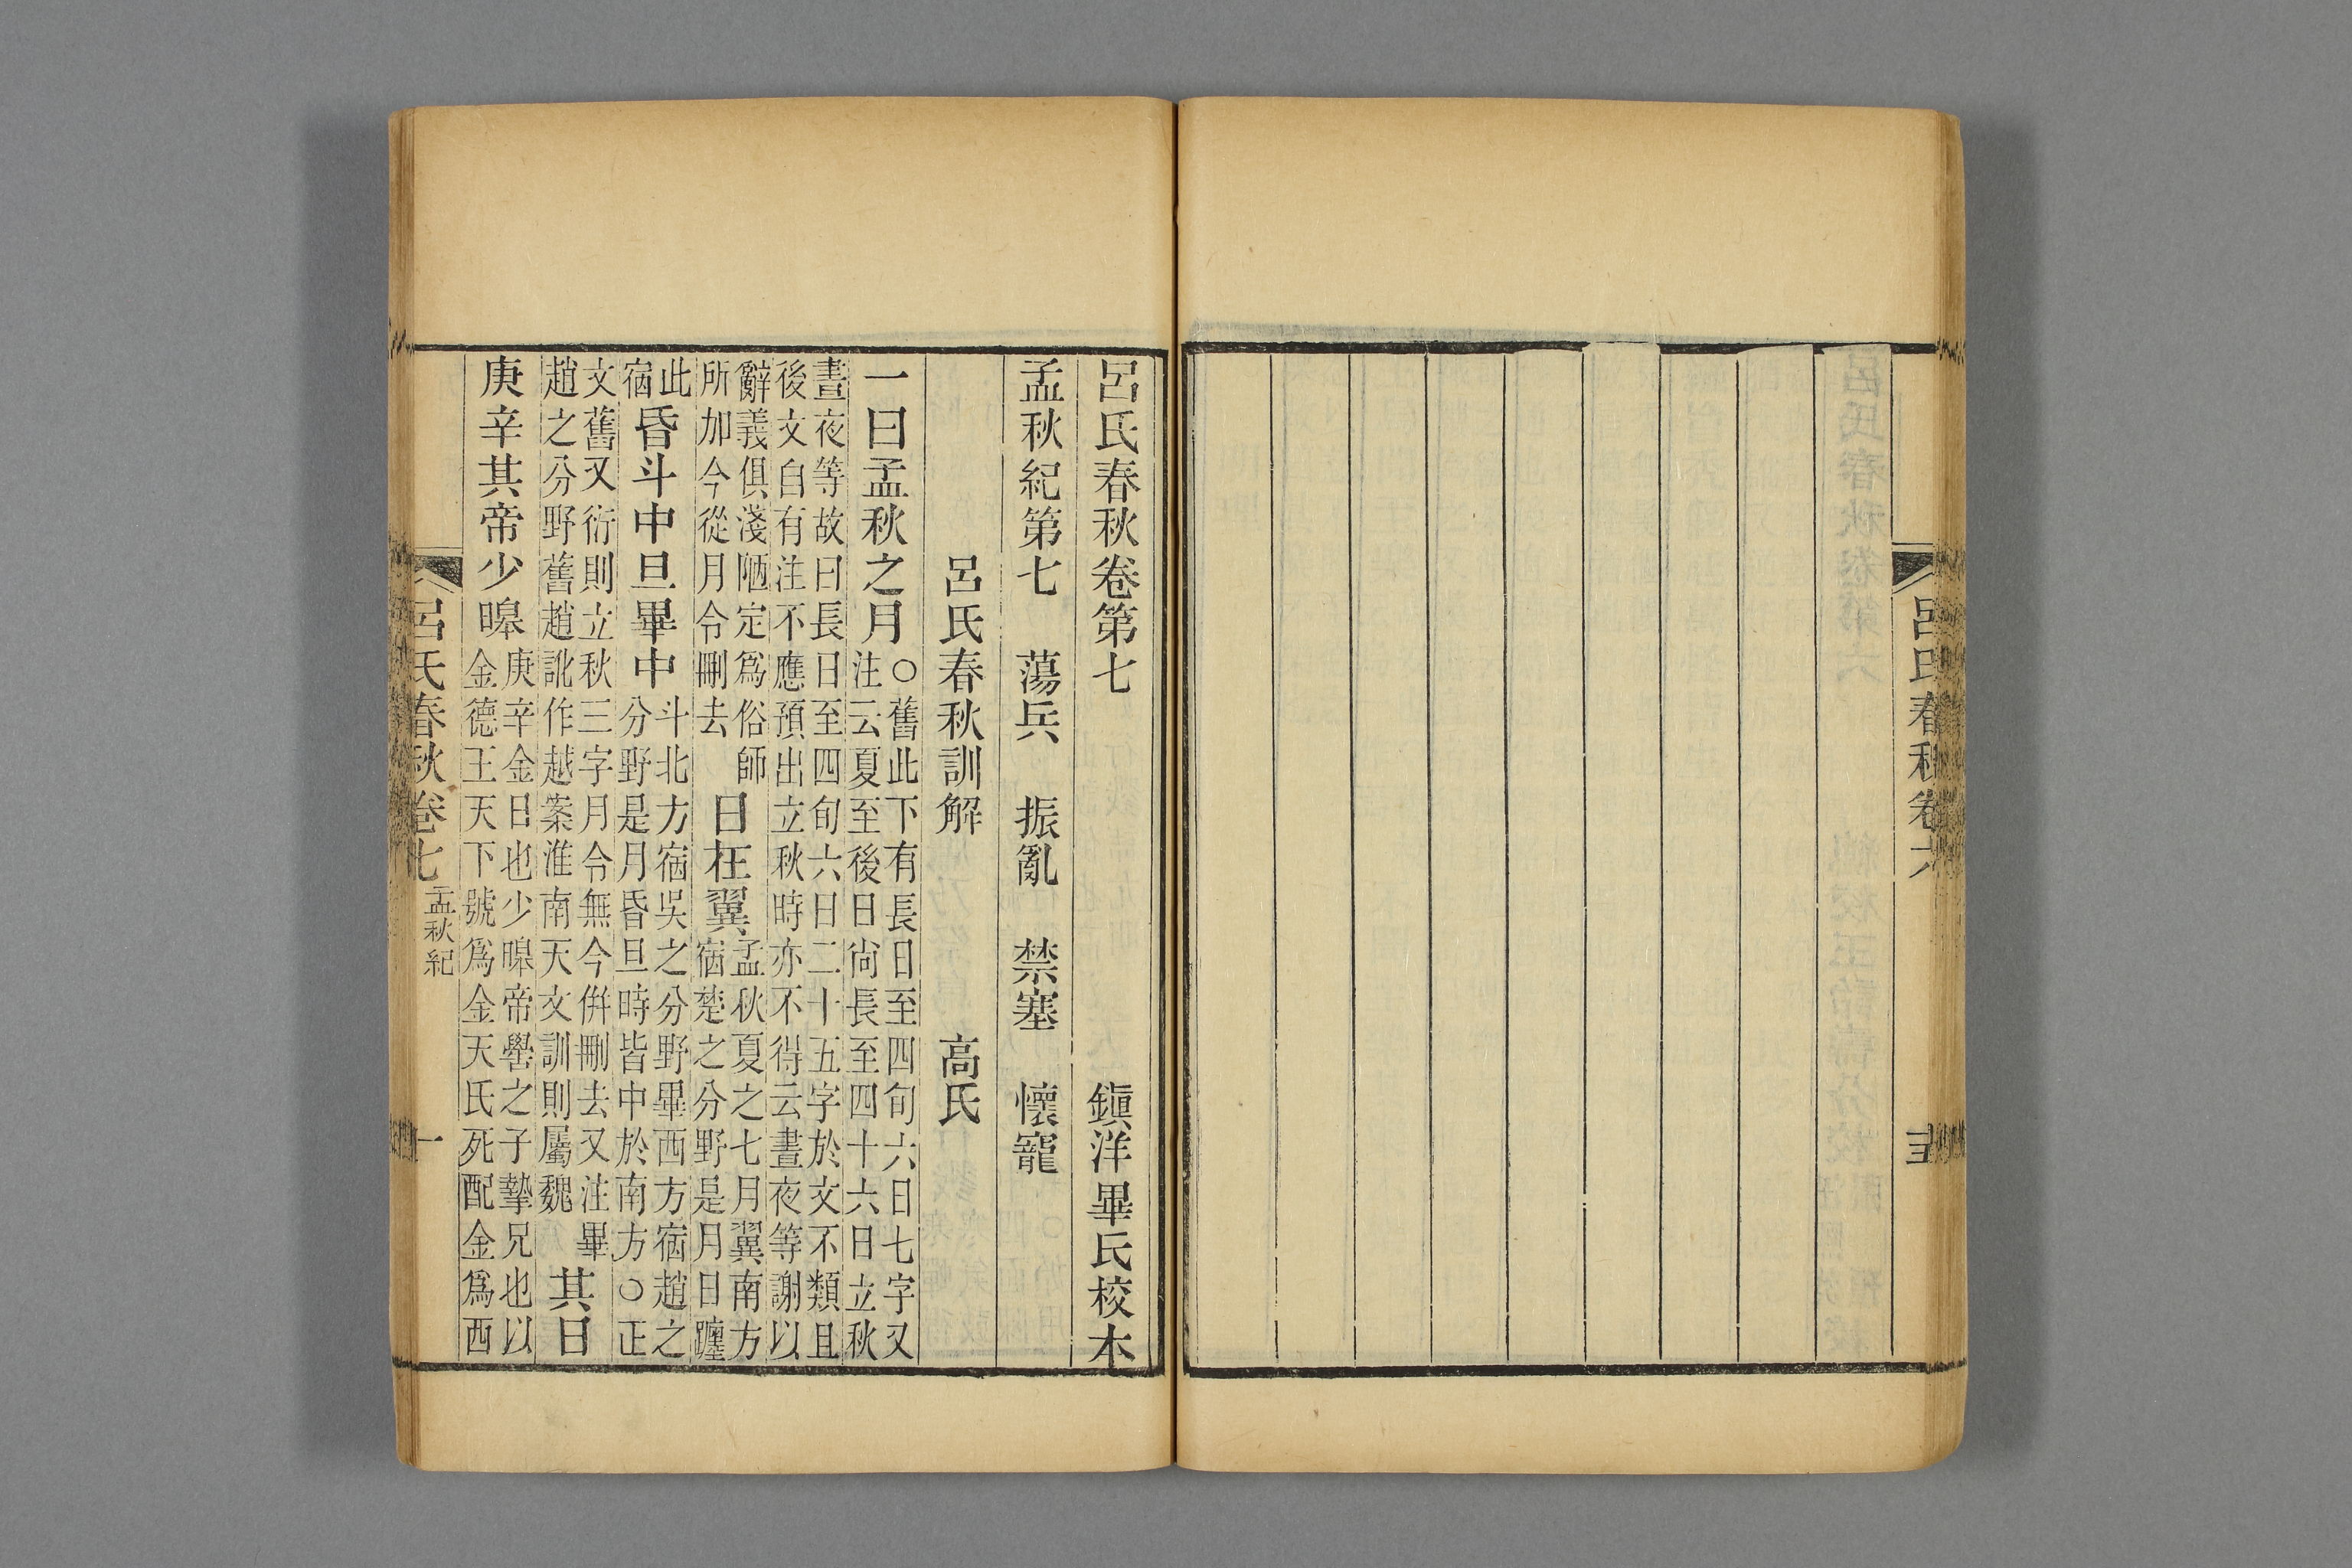 呂氏春秋卷六
呂氏春秋卷第七 鎭洋畢氏校本
孟秋紀第七 蕩兵 振亂 禁塞 懷寵
呂氏春秋訓解 高氏
一曰孟秋之月○舊此下有長日至四旬六日七字又
注云夏至後日尙長至四十六日立秋
晝夜等故曰長日至四旬六日二十五字於文不類且
後文自有注不應預出立秋時亦不得云晝夜等謝以
辭義俱淺陋定爲俗師
所加今從月令刪去
日在翼孟秋夏之七月翼南方
宿楚之分野是月日躔
此
宿
昏斗中旦畢中斗北方宿吳之分野畢西方宿趙之
分野是月昏旦時皆中於南方○正
文舊又衍則立秋三字月令無今併刪去又注畢
趙之分野舊趙訛作越案淮南天文訓則屬魏
其日
庚辛其帝少皞庚辛金日也少皞帝嚳之子摯兄也以
金德王天下號爲金天氏死配金爲西
呂氏春秋卷七 孟秋紀 一